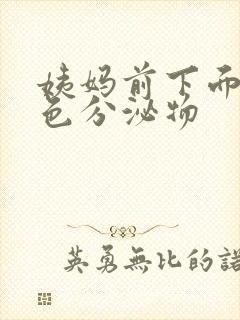 姨妈前下面
色分泌物
英勇無比的諾